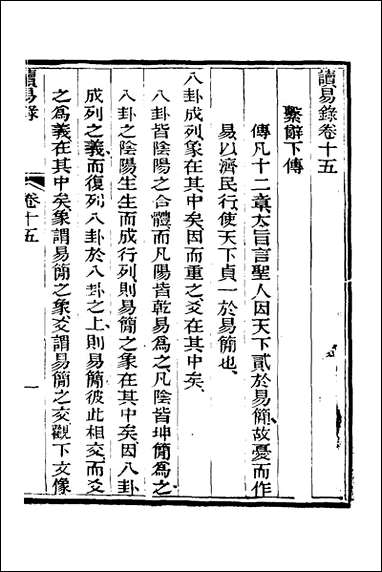 讀易錄卷十五
繫辭下傳
傳凡十二章大旨言聖人因天下貳於易簡故憂而作
易以濟民行使天下貞一於易簡也
八卦成列象在其中矣因而重之爻在其中矣
八卦皆陰陽之合體而凡陽皆乾易爲之凡陰皆坤簡爲之
八卦之陰陽生生而成行列則易簡之象在其中矣因八卦
成列之義而復列八卦於八卦之上則易簡彼此相交而爻
之爲義在其中矣象謂易簡之象爻謂易簡之交觀下文像
讀易錄
卷十五
一